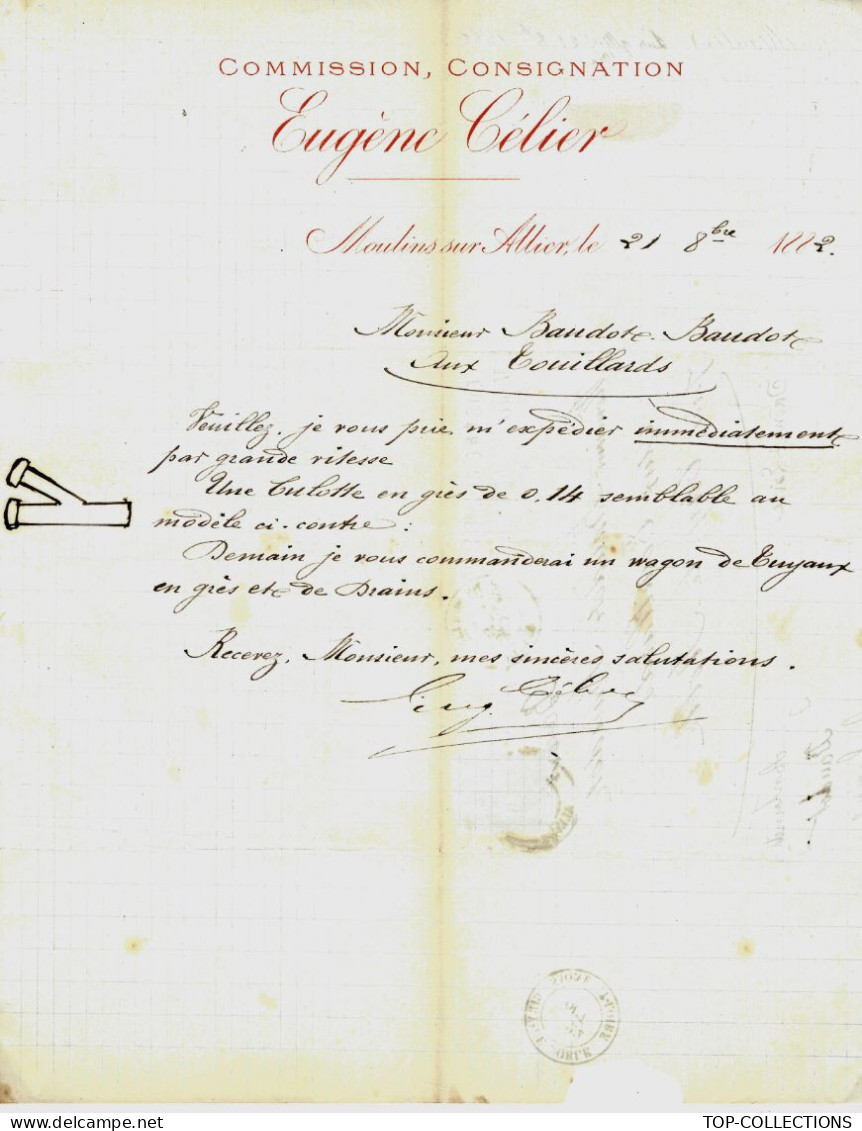 COMMISSION, CONSIGNATION
Eugène Célier
Moulins sur Allier, le 21 8bre 1882.
Monsieur Baudot-Baudot
Aux Touillards
Veuillez, je vous prie m'expédier immédiatement
par grande vitesse
Une Culotte en grès de 0.14 semblable au
modèle ci-contre :
Demain je vous commanderai un wagon de Tuyaux
en grès et de Drains.
Recevez, Monsieur, mes sincères salutations.
Eug. Célier
TOP-COLLECTIONS